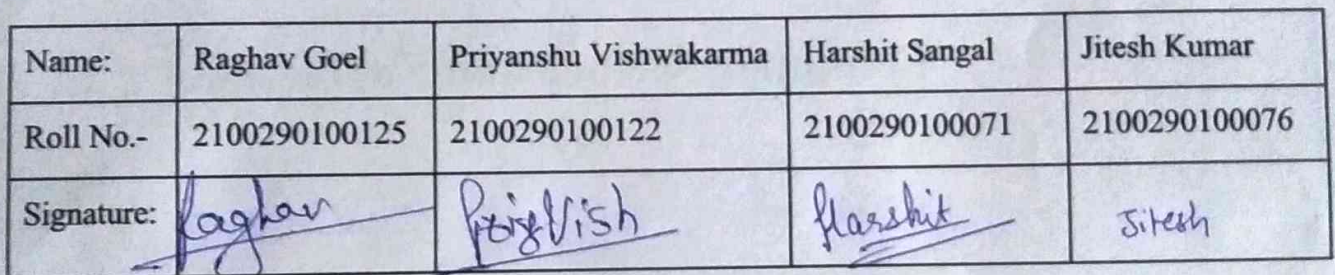 Name: Raghav Goel Priyanshu Vishwakarma Harshit Sangal Jitesh Kumar
Roll No.- 2100290100125 2100290100122 2100290100071 2100290100076
Signature: Raghav PriyVish Harshit Jitesh